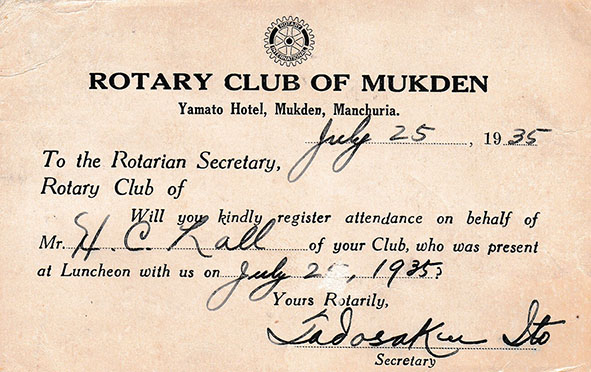 ROTARY INTERNATIONAL
ROTARY CLUB OF MUKDEN
Yamato Hotel, Mukden, Manchuria.
July 25, 1935
To the Rotarian Secretary,
Rotary Club of
Will you kindly register attendance on behalf of
Mr. H. C. Lall of your Club, who was present
at Luncheon with us on July 25, 1935?
Yours Rotarily,
Tadosaku Ito
Secretary